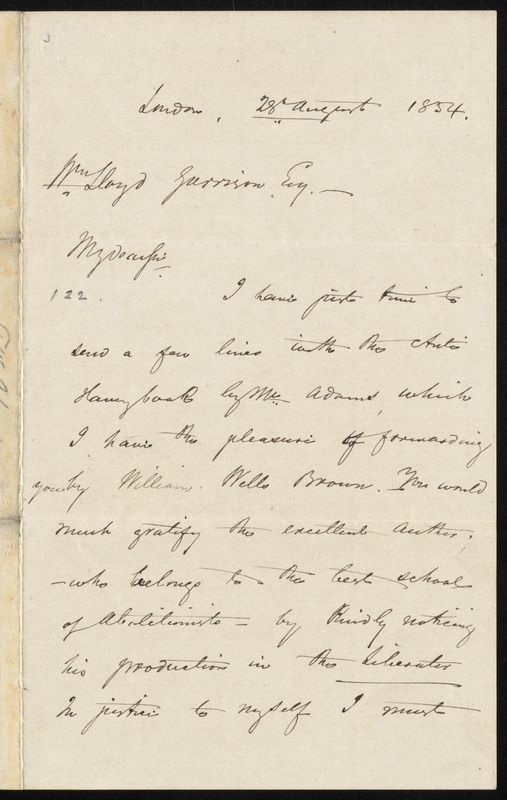 London, 28th August 1854.
Wm Lloyd Garrison Esq. —
My dear Sir
122.
I have just time to
send a few lines with the Anti
Slavery book by Mr Adams, which
I have the pleasure of forwarding
you by William Wells Brown. You would
much gratify the excellent author,
— who belongs to the best school
of Abolitionists — by kindly noticing
his production in the Liberator
In justice to myself I must